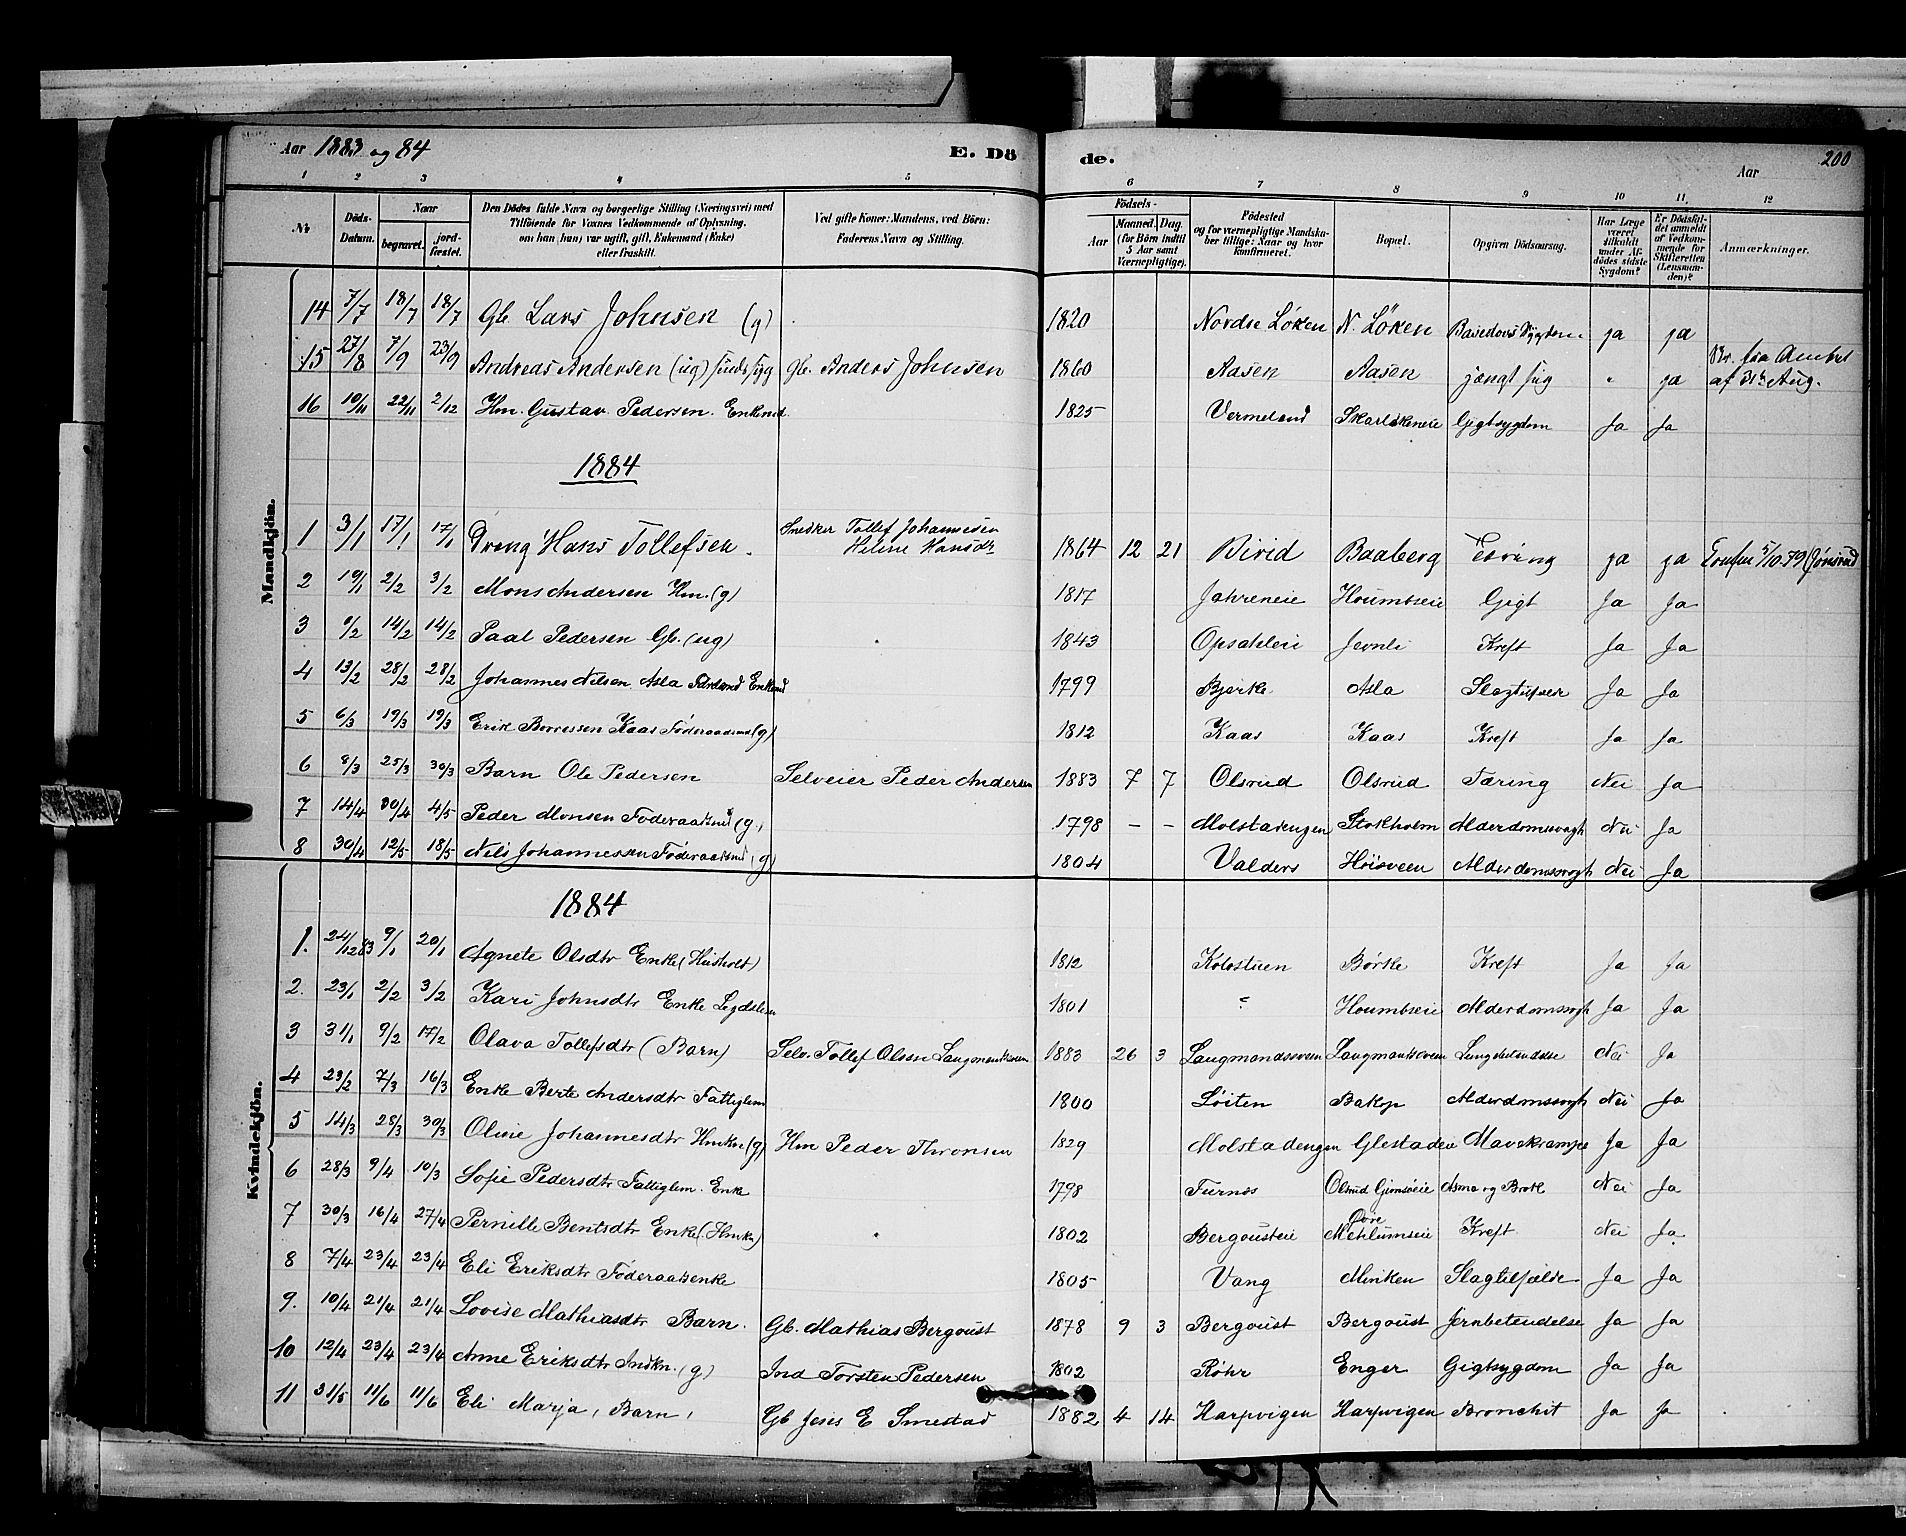 Aar 1883 og 84
E. Dö
de.
Aar
200
1 2 3 4 5 6 7 8 9 10 11. 12
Nr.
Döds-Datum.
Naar
begravet.
jord-fæstet.
Den Dödes fulde Navn og borgerlige Stilling (Næringsvei) med
Tilföiende for Voxnes Vedkommende af Oplysning,
om han (hun) var ugift, gift, Enkemand (Enke)
eller fraskilt.
Ved gifte Koner: Mandens, ved Börn:
Faderens Navn og Stilling.
Födsels-
Aar
Maaned. Dag.
(for Börn indtil
5 Aar samt
Værnepligtige).
Födested
og for værnepligtige Mandska-
ber tillige: Naar og hvor
konfirmeret.
Bopæl.
Opgiven Dödsaarsag.
Har Læge
været
tilkaldt
under Af-
dödes sidste
Sygdom?
Er Dödsfal-
det anmeldt
af Vedkom-
mende for
Skifteretten
(Lensman-
den)?
Anmærkninger.
Mandkjön.
14 7/7 18/7 18/7 Gb. Lars Johnsen (g) 1820 Nordre Löken N. Löken Basedows Sygdom ja ja
15 27/8 7/9 23/9 Andreas Andersen (ug) sindssyg Gb. Anders Johnsen 1860 Aasen Aasen ja Br. fra Amtet af 31te Aug.
16 10/11 22/11 2/12 Hm. Gustav Pedersen. Enkmd. 1825 Vermeland Gigtsygdom Ja Ja
1884
1 3/1 17/1 17/1 Dreng Hans Tollefsen. Snedker Tollef Johannesen Helene Hansdr 1864 12 21 Birid Baaberg Tæring ja ja 5/10.79
2 19/1 2/2 3/2 Mons Andersen Hm. (g) 1817 Jahreneie Houmbseie Gigt Ja Ja
3 9/2 14/2 14/2 Paal Pedersen Gb. (ug) 1843 Opsahleie Jevnli Kreft Ja Ja
4 13/2 28/2 28/2 Johannes Nilsen Asla Enkmd 1799 Bjerke Asla Ja Ja
5 6/3 19/3 19/3 Erik Borresen Kaas Föderaadsmd (g) 1812 Kaas Kaas Kreft Ja Ja
6 8/3 25/3 30/3 Barn Ole Pedersen Selveier Peder Andersen 1883 7 7 Olsrud Olsrud Tæring Nei Ja
7 14/4 20/4 4/5 Peder Monsen Föderaadsmd (g) 1798 – – Molstadengen Stokholm Alderdomssvagh Nei Ja
8 30/4 12/5 18/5 Nils Johannessen Föderaadsmd (g) 1804 Valders Höisveen Alderdomssvagh Nei Ja
Kvindekjön.
1884
1. 24/12 83 9/1 20/1 Agnete Olsdtr Enke (Husholt) 1812 Kolostuen Børke Kreft Ja Ja
2. 23/1 2/2 3/2 Kari Johnsdtr Enke Legdslem 1801 Houmbseie Alderdomssvgh Ja Ja
3 31/1 9/2 17/2 Olava Tollefsdtr (Barn) Selv. Tollef Olsen Laugmandsveen 1883 26 3 Laugmandssveen Laugmandsveen Lungebetendelse Nei Ja
4 23/2 7/3 16/3 Enke Berte Andersdtr Fattiglem 1800 Löiten Bakop Alderdomssvgh Nei Ja
5 14/3 28/3 30/3 Oline Johannesdtr Hmkn (g) Hm Peder Thronsen 1829 Molstadengen Glestadeie Mavekrampe Ja Ja
6 28/3 9/4 10/3 Sofie Pedersdtr Fattiglem. Enke 1798 Furnæs Olsrud Gimsöeie Asma og Brok Nei Ja
7 30/3 16/4 27/4 Pernille Bentsdtr Enke (Hmkn) 1802 Bergousteie Övre Mehlumseie Kreft Nei Ja
8 7/4 23/4 23/4 Eli Eriksdtr Föderaadsenke 1805 Vang Minken Slagtilfælde Ja Ja
9. 10/4 21/4 21/4 Lovise Mathiasdtr Barn. Gb. Mathias Bergoust 1878 9 3 Bergoust Bergoust Ja Ja
10 12/4 23/4 23/4 Anne Eriksdtr Indkn. (g) Ind Torsten Pedersen 1802 Röhr Enger Gigtsygdom Ja Ja
11 31/5 11/6 11/6 Eli Marja, Barn, Gb Jens E Smestad 1882 4 14 Harpvigen Harpvigen Bronchit Ja Ja